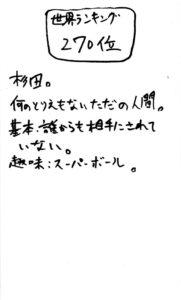 世界ランキング
270位
杉田。
何のとりえもないただの人間。
基本:誰からも相手にされて
いない。
趣味:スーパーボール。